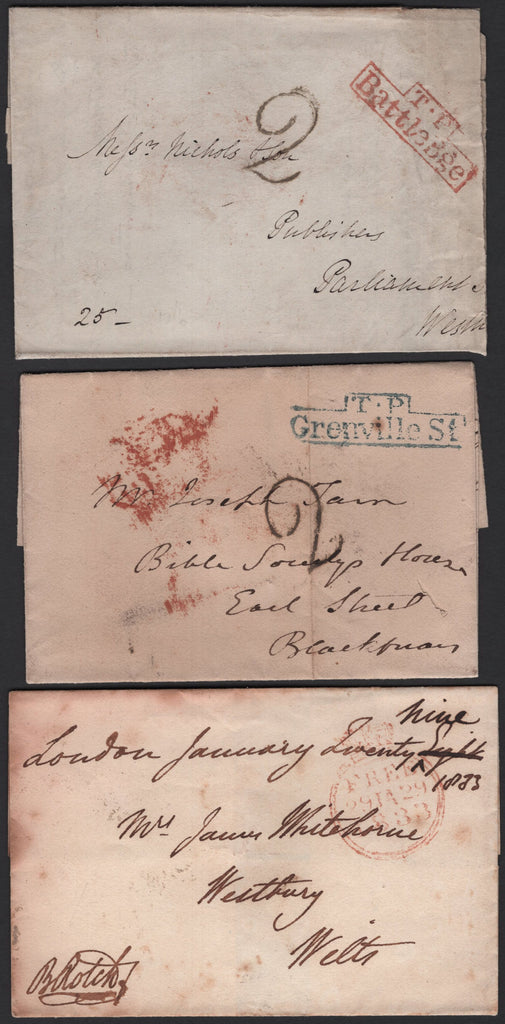 T.P
BattleBge
2
Messrs Nichols & Son
Publishers
Parliament S
Westm
25-
T.P
Grenville St
2
Mr Joseph Tarn
Bible Socitys House
Earl Street
Blackfriars
nine
London January Twenty Eight
1833
FREE
29JA29
1833
Mrs James Whitehorne
Westbury
Wilts
B Rotch